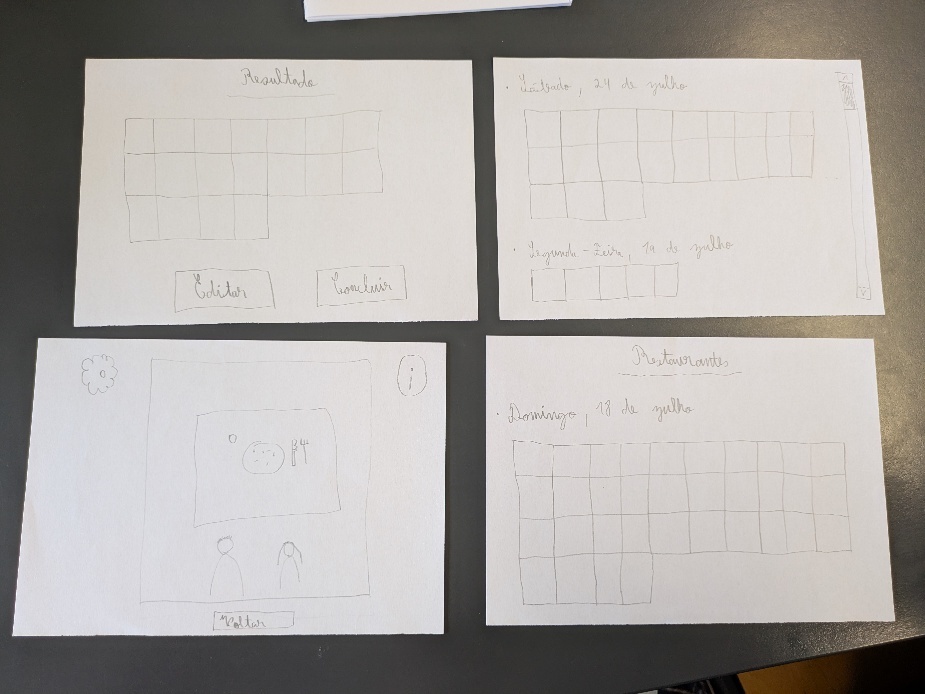 Resultado
Editar
Concluir
Sábado, 24 de julho
Segunda-Feira, 19 de julho
i
Voltar
Restaurantes
Domingo, 18 de julho